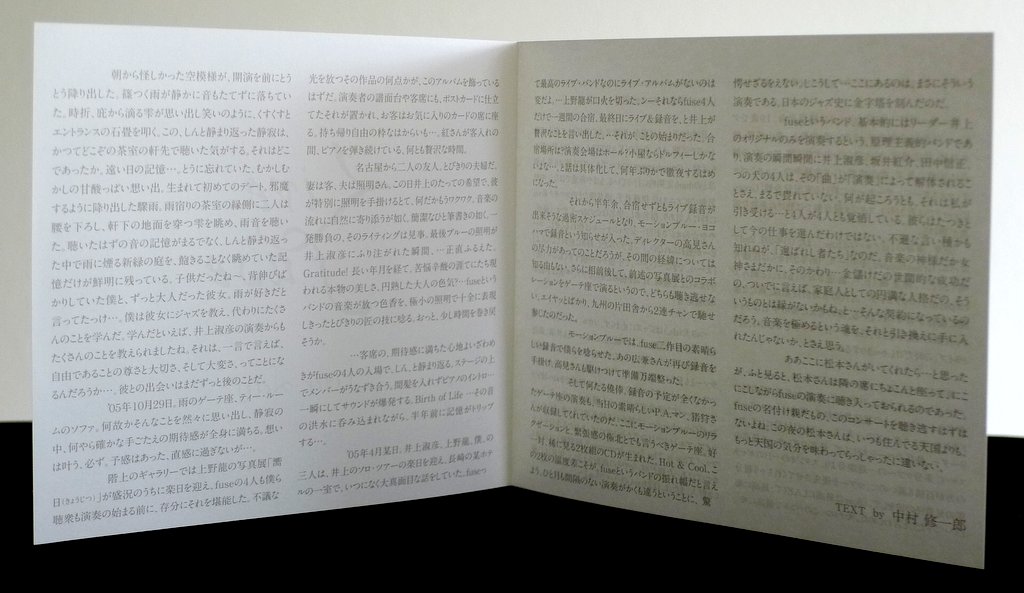 朝から怪しかった空模様が、開演を前にとう
とう降り出した。篠つく雨が静かに音もたてずに落ちてい
た。時折、庇から滴る雫が思い出し笑いのように、くすくすと
エントランスの石畳を叩く、この、しんと静まり返った静寂は、
かつてどこぞの茶室の軒先で聴いた気がする。それはどこ
であったか。遠い日の記憶…。とうに忘れていた、むかしむ
かしの甘酸っぱい想い出。生まれて初めてのデート。邪魔
するように降り出した驟雨。雨宿りの茶室の縁側に二人は
腰を下ろし、軒下の地面を穿つ雫を眺め、雨音を聴いてい
た。聴いたはずの音の記憶がまるでなく、しんと静まり返っ
た中で雨に煙る新緑の庭を、飽きることなく眺めていた記
憶だけが鮮明に残っている。子供だったね〜、背伸びば
かりしていた僕と、ずっと大人だった彼女。雨が好きだと
言ってたっけ…。僕は彼女にジャズを教え、代わりにたくさ
んのことを学んだ。学んだといえば、井上淑彦の演奏からも
たくさんのことを教えられましたね。それは、一言で言えば、
自由であることの尊さと大切さ、そして大変さ、ってことにな
るんだろうか…。彼との出会いはまだずっと後のことだ。
'05年10月29日。雨のゲーテ座、ティー・ルー
ムのソファ。何故かそんなことを然々に思い出し、静寂の
中、何やら確かな手ごたえの期待感が全身に満ちる。想い
は叶う、必ず。予感はあった、直感に過ぎないが…。
階上のギャラリーでは上野龍の写真展「濁
日(きょうじつ)」が盛況のうちに楽日を迎え、fuseの4人も僕ら
聴衆も演奏の始まる前に、存分にそれを堪能した。不議な
光を放つその作品の何点かが、このアルバムを飾っている
はずだ。演奏者の譜面台や客席にも、ポストカードに仕立
てたそれが置かれ、お客はお気に入りのカードの席に座
る。持ち帰り自由の粋なはからいも…。紅さんが客入れの
間、ピアノを弾き続けている。何とも贅沢な時間。
名古屋から二人の友人、とびきりの夫婦だ。
妻は客、夫は照明さん。この日井上のたっての希望で、彼
が特別に照明を手掛けるとて、何だかもうワクワク。音楽の
流れに自然に寄り添うが如く、簡潔なひと筆書きの如く、一
発勝負の、そのライティングは見事。最後ブルーの照明が
井上淑彦にふり注がれた瞬間、…正直ふるえた。
Gratitude! 長い年月を経て、苦悩辛酸の涯てにたち現
われる本物の美しさ、円熟した大人の色気?…fuseという
バンドの音楽が放つ色香を、極小の照明で十全に表現
しきったとびきりの匠の技に唸る。おっと、少し時間を巻き戻
そうか。
…客席の、期待感に満ちた心地よいざわめ
きがfuseの4人の入場で、しん、と静まり返る。ステージの上
でメンバーがうなずき合う。間髪を入れずピアノのイントロ…
一瞬にしてサウンドが爆発する。Birth of Life …その音
の洪水に呑み込まれながら、半年前に記憶がトリップ
する…。
'05年4月某日。井上淑彦、上野龍、僕、の
三人は、井上のソロ・ツアーの楽日を迎え、長崎の某ホテ
ルの一室で、いつになく大真面目な話をしていた。fuseっ
て最高のライブ・バンドなのにライブ・アルバムがないのは
変だよ…上野龍が口火を切った。ンーそれならfuse4人
だけで一週間の合宿、最終日にライブ&録音を、と井上が
贅沢なことを言い出した。…それが、ことの始まりだった。合
宿場所は?演奏会場はホール?小屋ならドルフィーしかな
いよな…、と話は具体化して、何年ぶりかで徹夜するはめ
になった。
それから半年余、合宿せずともライブ録音が
出来そうな過密スケジュールとなり、モーションブルー・ヨコ
ハマで録音という知らせが入った。ディレクターの高見さん
の尽力があってのことだろうが、その間の経緯については
知る由もない。さらに相前後して、前述の写真展とのコラボ
レーションをゲーテ座で演るというので、どちらも聴き逃せな
い。エイヤッとばかり、九州の片田舎から2連チャンで馳せ
参じたのだった。
モーションブルーでは、fuse二作目の素晴ら
しい録音で僕らを唸らせた、あの広兼さんが再び録音を
手掛け、高見さんも駆けつけて準備万端整った。
そして何たる僥倖、録音の予定が全くなかっ
たゲーテ座の演奏も、当日の素晴らしいP.A.マン、猪狩さ
んが収録してくれていたのだ。ここにモーションブルーのリラ
クゼーションと、緊張感の極北とでも言うべきゲーテ座、好
一対、稀に見る2枚組のCDが生まれた。Hot & Cool、こ
の2枚の温度差こそが、fuseというバンドの振れ幅だと言え
よう。ひと月も間隔のない演奏がかくも違うということに、驚
愕せざるをえない。しこうして…ここにあるのは、まさにそういう
演奏である。日本のジャズ史に金字塔を刻んだのだ。
fuseというバンド。基本的にはリーダー井上
のオリジナルのみを演奏するという、原理主義的バンドであ
り、演奏の瞬間瞬間に井上淑彦、坂井紅介、田中信正、
つの犬の4人は、その「曲」が「演奏」によって解体されるこ
とさえ、まるで畏れていない。何が起ころうとも、それは私が
引き受ける…と4人が4人とも覚悟している。彼らはたつきと
して今の仕事を選んだわけではない。不遜な言い種かも
知れぬが、「選ばれし者たち」なのだ。音楽の神様だか女
神さまだかに。そのかわり…金儲けだの世間的な成功だ
の、ついでに言えば、家庭人としての円満な人格だの、そう
いうものとは縁がないからね、と…そんな契約になっているの
だろう。音楽を極めるという魂を、それと引き換えに手に入
れたんじゃないか、とさえ思う。
ああここに松本さんがいてくれたら…と思った
が、ふと見ると、松本さんは隣の席にちょこんと座って、にこ
にこしながらfuseの演奏に聴き入っておられるのであった。
fuseの名付け親だもの、このコンサートを聴き逃すはずは
ないよね。この夜の松本さんは、いつも住んでる天国よりも、
もっと天国の気分を味わってらっしゃったに違いない。
TEXT by 中村 修一郎